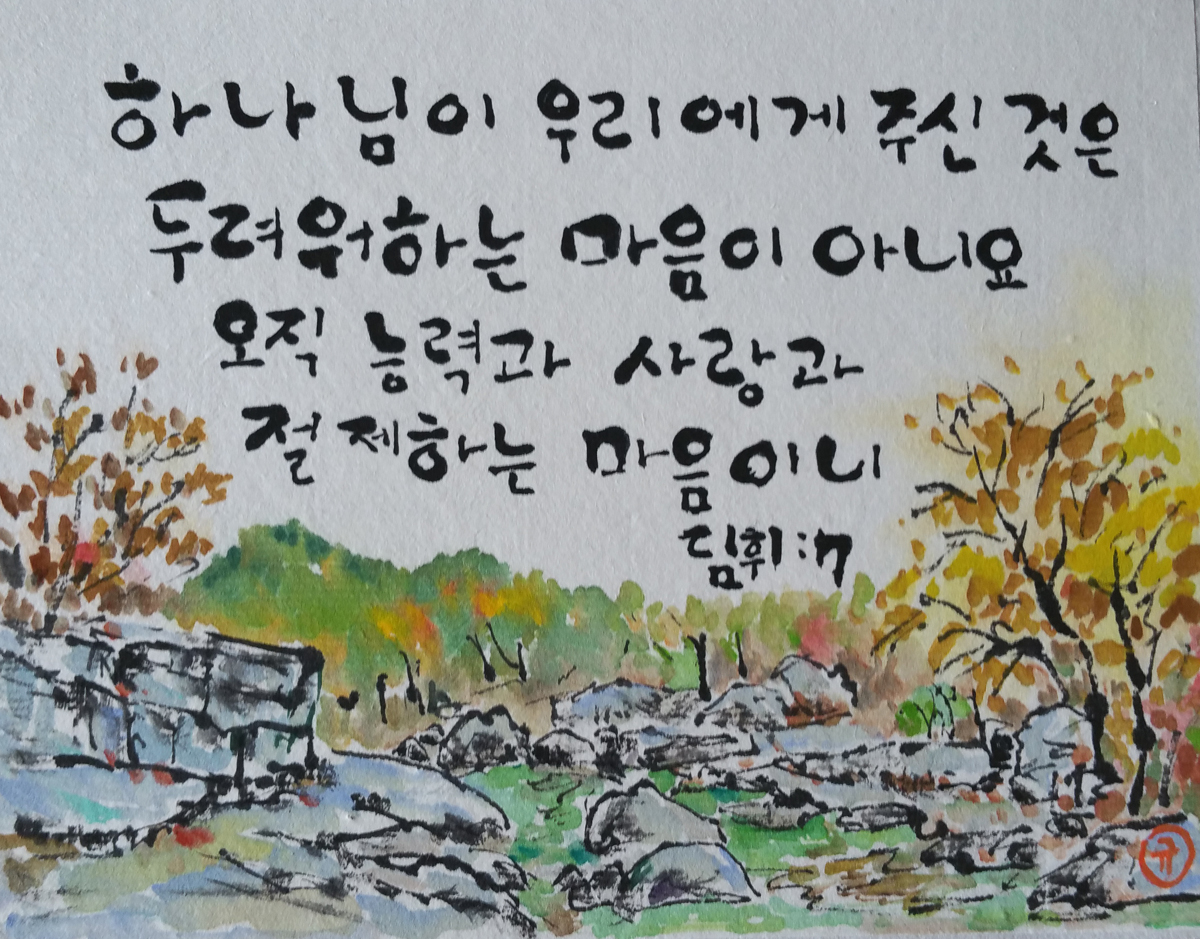 하나님이 우리에게 주신 것은
두려워하는 마음이 아니요
오직 능력과 사랑과
절제하는 마음이니
딤휘:7
규